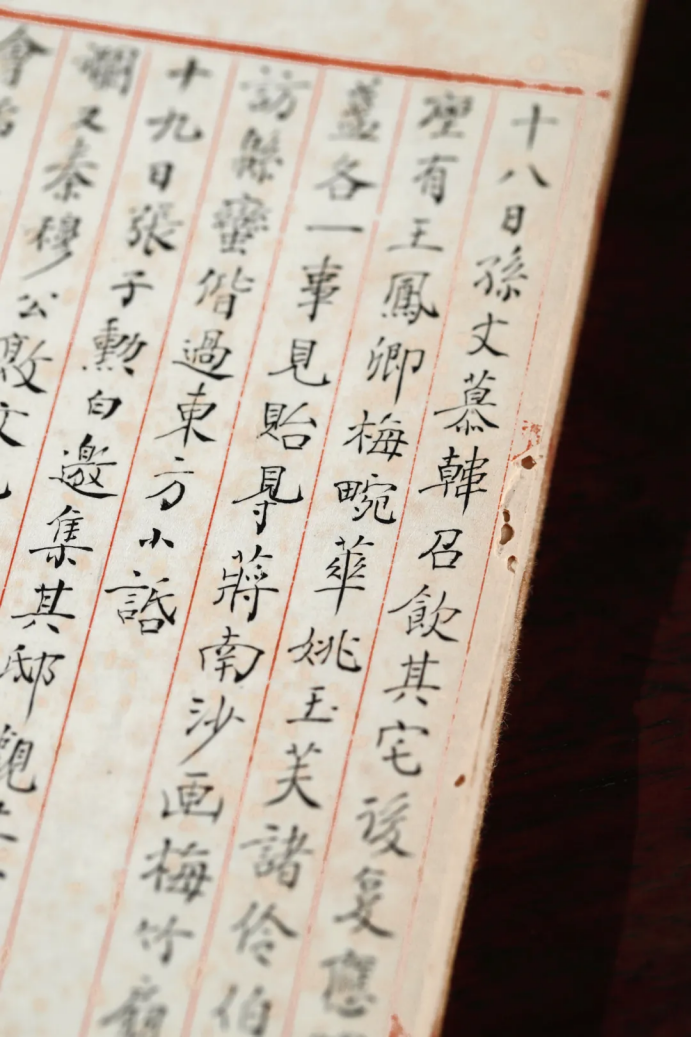 十八日孫丈慕韓召飲其宅後复應
座有王鳳卿梅畹華姚玉芙諸伶伯
蓋各一事見貽㝵蔣南沙画梅竹扇
訪緜蠻偕過東方小話
十九日張子勳白邀集其邸觀
斕又秦穆公敦文
會